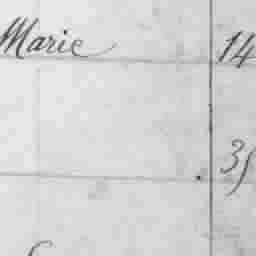 Marie 14
35